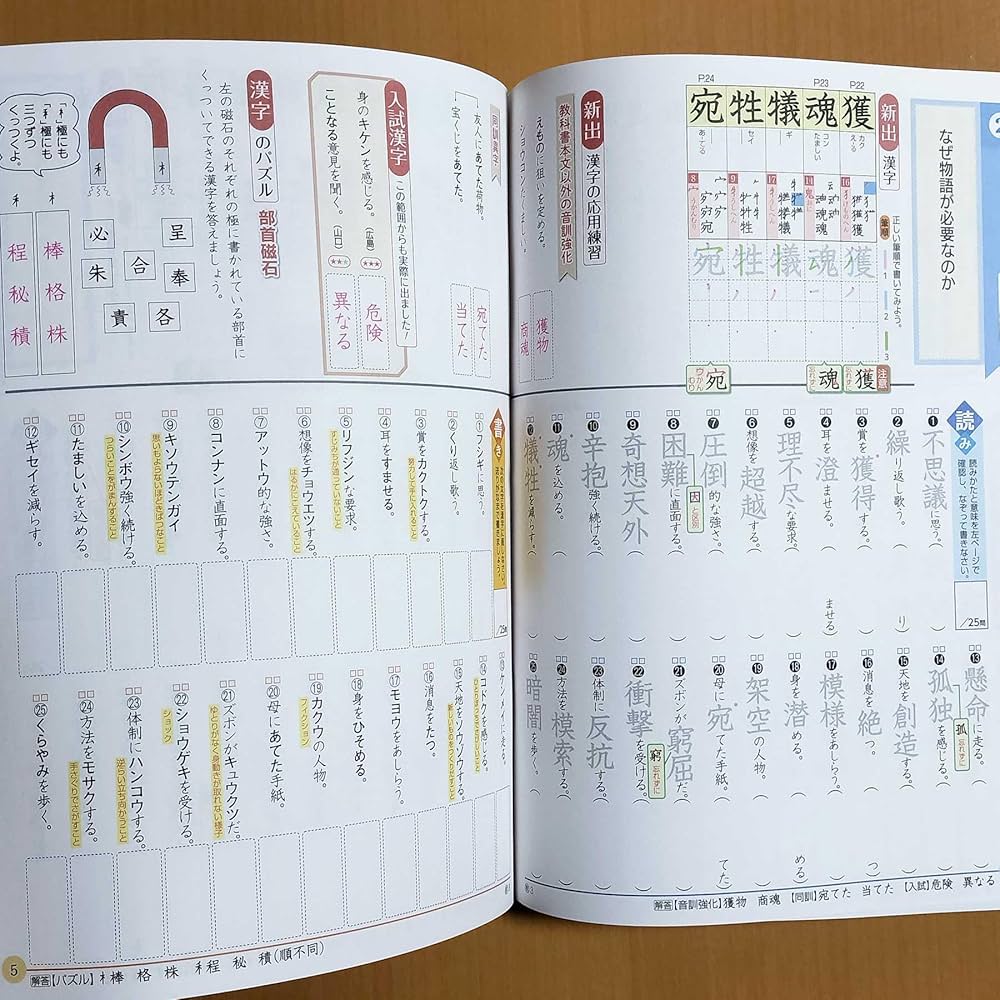 なぜ物語が必要なのか
新出 漢字
正しい筆順で書いてみよう。
筆順 1 2 3
P.22
獲
カク
え-る
16
けものへん
獲
P.23
魂
コン
たましい
14
おに
魂
犠
ギ
17
うしへん
犠
牲
セイ
9
うしへん
牲
P.24
宛
あ-てる
8
うかんむり
宛
注意
獲 忘れずに
魂 忘れずに
宛 ウかんむり
新出 漢字の応用練習
教科書本文以外の音訓強化
えものに狙いを定める。
獲物
ショウコンたくましい。
商魂
同訓漢字
友人にあてた荷物。
宛てた
宝くじをあてた。
当てた
入試漢字 この範囲からも実際に出ました!
身のキケンを感じる。(広島)
★★★
危険
ことなる意見を聞く。(山口)
★★★
異なる
漢字のパズル 部首磁石
左の磁石のそれぞれの極に書かれている部首に
くっついてできる漢字を答えましょう。
「木」極にも
「禾」極にも
三つずつ
くっつくよ。
禾 木
呈
必
奉
合
朱
各
貴
木 棒 格 株
禾 程 秘 積
読み 読みかたと意味を左ページで
確認し、なぞって書きなさい。
/25問
❶不思議に思う。
❷繰り返し歌う。( り)
❸賞を獲得する。
❹耳を澄ませる。( ませる)
❺理不尽な要求。
❻想像を超越する。
❼圧倒的な強さ。
❽困難に直面する。
因 と区別
❾奇想天外
❿辛抱強く続ける。
⓫魂を込める。
⓬犠牲を減らす。
⓭懸命に走る。
⓮孤独を感じる。
孤 忘れずに
⓯天地を創造する。
⓰消息を絶つ。( つ)
⓱模様をあしらう。
⓲身を潜める。( める)
⓳架空の人物。
⓴母に宛てた手紙。( てた)
㉑ズボンが窮屈だ。
窮 忘れずに
㉒衝撃を受ける。
㉓体制に反抗する。
㉔方法を模索する。
㉕暗闇を歩く。
解答【音訓強化】獲物 商魂 【同訓】宛てた 当てた 【入試】危険 異なる
書き
/25問
①フシギに思う。
②くり返し歌う。
③賞をカクトクする。
努力して手に入れること
④耳をすませる。
⑤リフジンな要求。
⑥想像をチョウエツする。
はるかにこえていること
⑦アットウ的な強さ。
⑧コンナンに直面する。
⑨キソウテンガイ
思いもよらないほどきばつなこと
⑩シンボウ強く続ける。
つらいことをがまんすること
⑪たましいを込める。
⑫ギセイを減らす。
⑬ケンメイに走る。
⑭コドクを感じる。
⑮天地をソウゾウする。
新しいものをつくりだすこと
⑯消息をたつ。
⑰モヨウをあしらう。
⑱身をひそめる。
⑲カクウの人物。
フィクション
⑳母にあてた手紙。
㉑ズボンがキュウクツだ。
ゆとりがなく身動きが取れない様子
㉒ショウゲキを受ける。
ショック
㉓体制にハンコウする。
逆らい立ち向かうこと
㉔方法をモサクする。
手さぐりでさがすこと
㉕くらやみを歩く。
5
解答【パズル】木棒 格 株 禾程 秘 積(順不同)